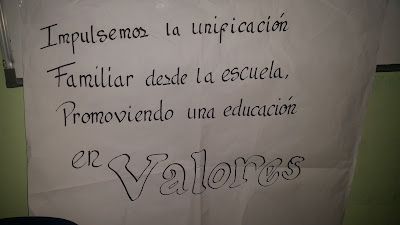 Impulsemos la unificación
Familiar desde la escuela,
Promoviendo una educación
en Valores